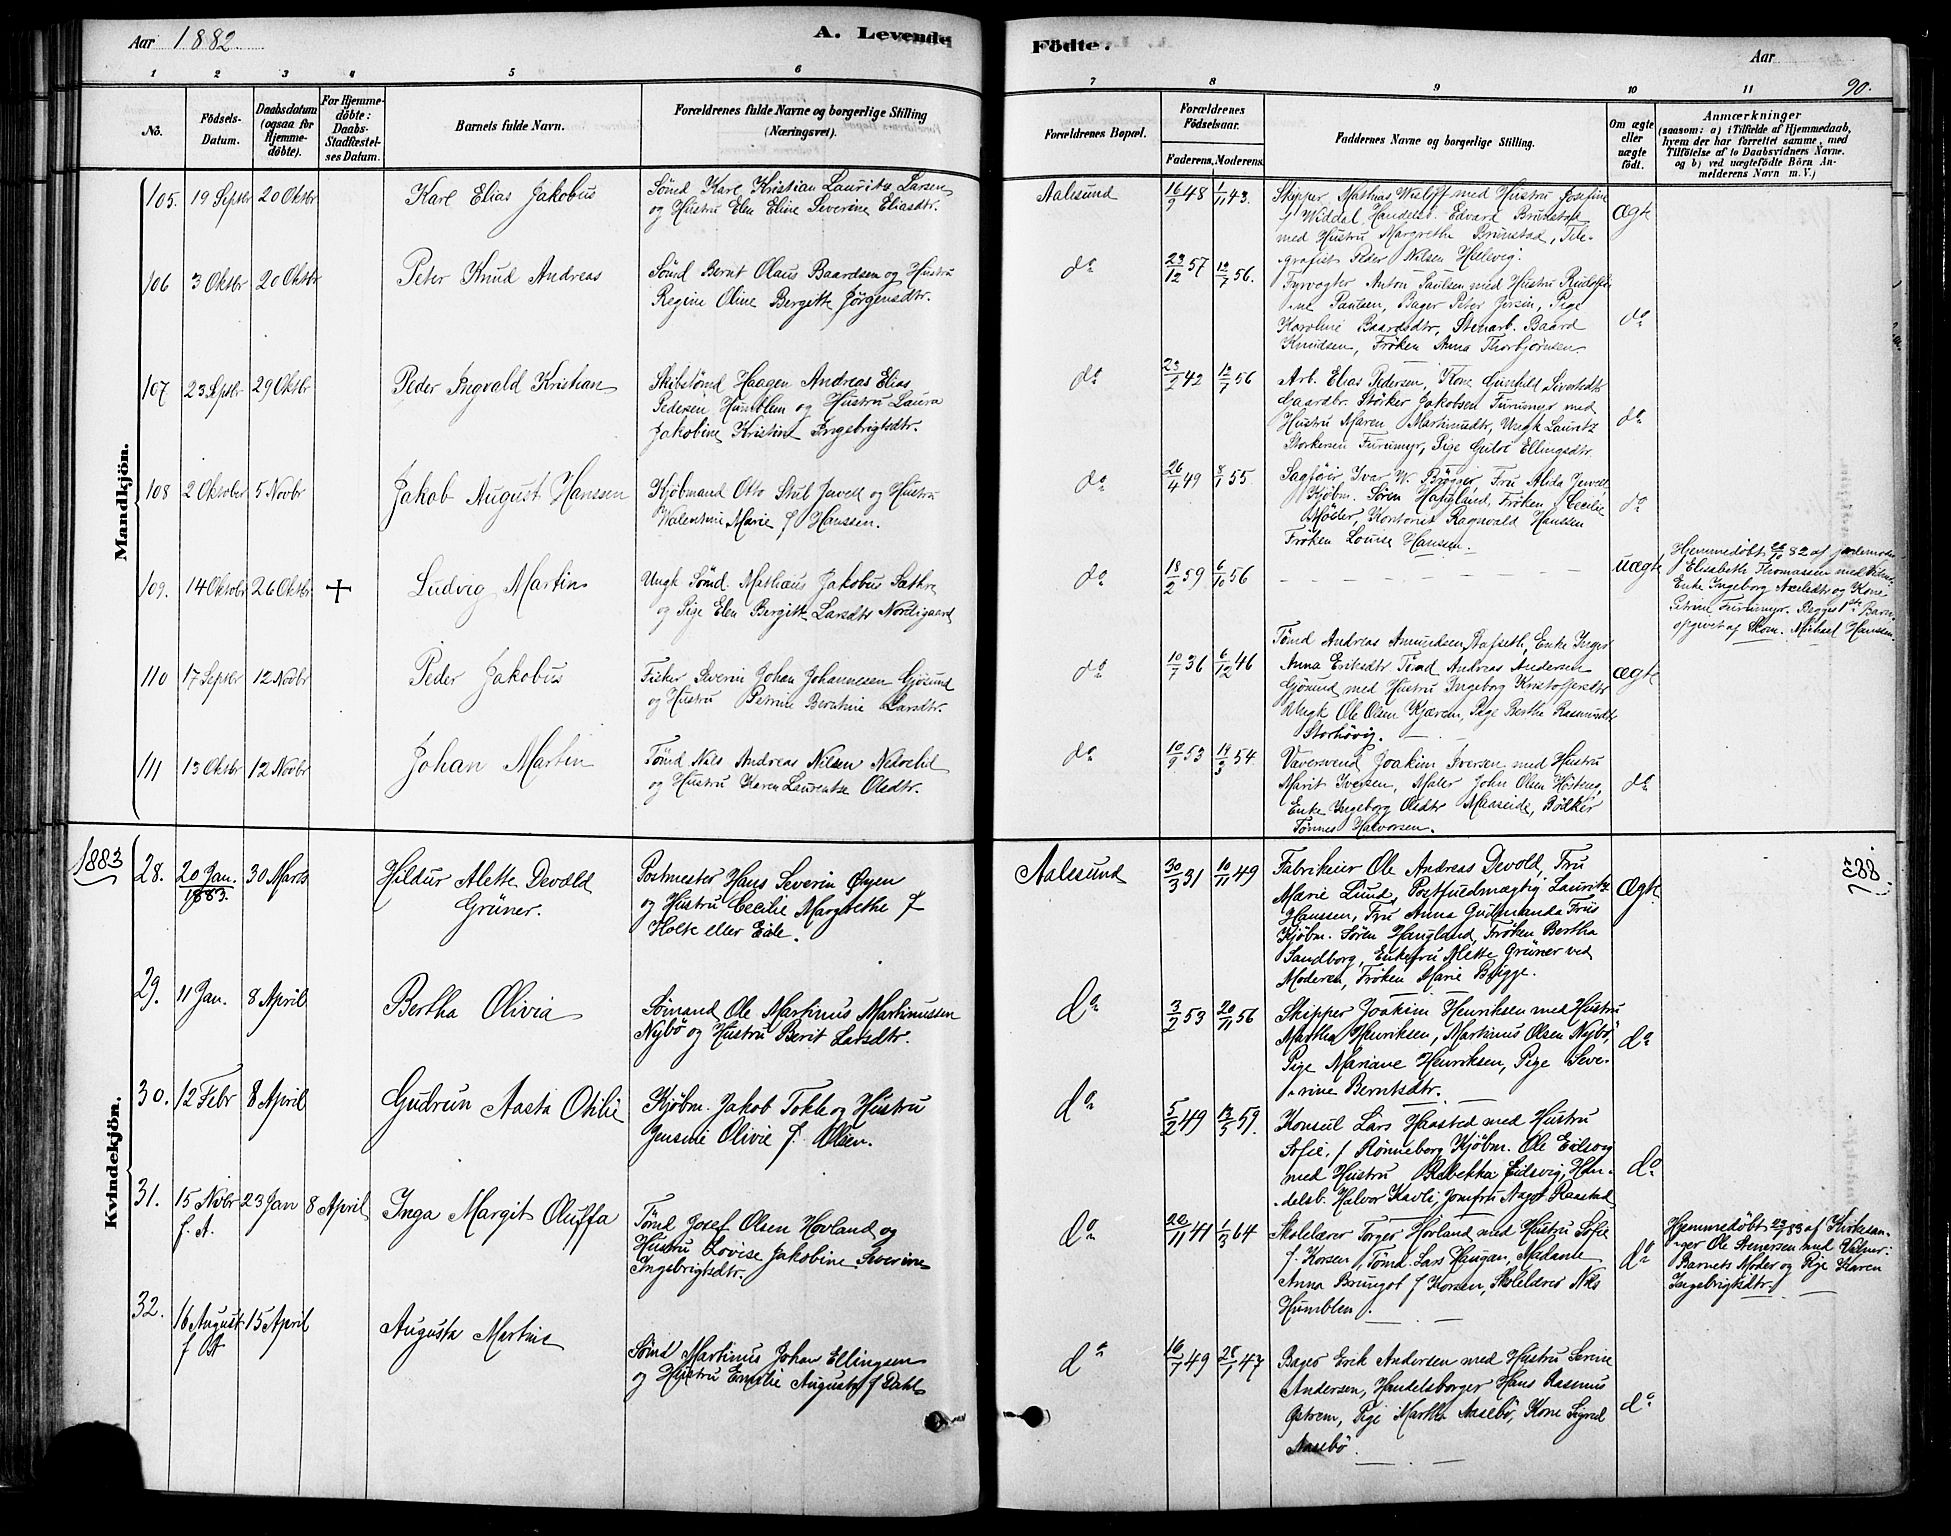 Aar 1882.
A. Levende
Födte.
Aar
90.
1 2 3 4 5 6
7 8 9 10 11
No.
Födsels-
Datum.
Daabsdatum
(ogsaa for
Hjemme-
döbte).
For Hjemme-
döbte:
Daabs-
Stadfæstel-
ses Datum.
Barnets fulde Navn.
Forældrenes fulde Navne og borgerlige Stilling
(Næringsvei).
Forældrenes Bopæl.
Forældrenes
Födselsaar.
Faderens. Moderens.
Faddernes Navne og borgerlige Stilling.
Om ægte
eller
uægte
födt.
Anmærkninger
(saasom: a) i Tilfælde af Hjemmedaab,
hvem der har forrettet samme, med
Tilföielse af to Daabsvidners Navne.
og b) ved uægtefödte Börn An-
melderens Navn m. V.)
Mandkjön.
105. 19 Septbr 20 Oktbr Karl Elias Jakobus
Sømd Karl Kristian Lauritz Larsen
og Hustru Elen Eline Severine Eliasdtr.
Aalesund 16/9 48 1/11 43.
Skipper Mathias Wulff med Hustru Josefine
f Widdal Handelsb. Edvard Brunstad
med Hustru Margrethe Brunstad, Tele-
grafist Peder Nilsen Hellevig.
Ægte
106 3 Oktbr 20 Oktbr Peter Knud Andreas
Sømd Bernt Olaus Baardsen og Hustru
Regine Oline Bergette Jørgensdtr.
do 23/12 57 12/7 56.
Fyrvogter Anton Paulsen med Hustru Rudolfi-
ne Paulsen, Bager Peter Jersin, Pige
Karoline Baardsdtr, Stenarb. Baard
Knudsen, Frøken Anna Thorbjørnsen.
do
107 23 Septbr 29 Oktbr Peder Ingvald Kristian
Skibstømd Haagen Andreas Elias
Pedersen Humblen og Hustru Laura
Jakobine Kristine Ingebrigtsdtr.
do 23/2 42 12/1 56
Arb. Elias Pedersen, Kone Gunhild Sivertsdtr
Gaardbr. Størker Jakobsen Furumyr med
Hustru Maren Martinusdtr, Ungk Lauritz
Storkersen Furumyr, Pige Guloi Ellingsdtr.
do
108 2 Oktober 5 Novbr Jakob August Hanssen
Kjøbmand Otto Stub Jervell og Hustru
Walentine Marie f Hanssen.
do 26/4 49 8/1 55
Sagfører Ivar W. Brøgger Fru Alida Jervell
Kjøbm. Søren Haugland, Frøken Cecilie
Møller, Kontorist Ragnvald Hanssen
Frøken Louise Hansen.
do
109. 14 Oktobr 26 Oktbr + Ludvig Martin
Ungk Sømd Mathæus Jakobus Sæthre
og Pige Elen Bergitte Larsdtr Nordigaard
do 18/2 59 6/10 56
uægte
Hjemmedøbt 26/10 82 af Jordemoder
Elisabeth Thomassen med Vidner
Enke Ingeborg Axelsdtr og Kone
Petrine Furumyr. Begges 1ste Barn
opgivet af Skom. Michael Hansen.
110 17 Septbr 12 Novbr Peder Jakobus
Fisker Severin Johan Johannesen Gjøsund
og Hustru Petrine Berntine Larsdtr.
do 10/7 36 6/12 46
Tømd Andreas Amundsen Rafseth, Enke Inger
Anna Eriksdtr Tømd Andreas Andersen
Gjøsund med Hustru Ingeborg Kristoffersdtr
Ungk Ole Olsen Kjærem, Pige Berthe Rasmusdtr
Storhøvig.
ægte
111 13 Oktbr 12 Novbr Johan Martin
Tømd Nils Andreas Nilsen Nedrelid
og Hustru Karen Laurentse Olsdtr.
do 10/9 53 19/3 54
Væversvend Joakim Iversen med Hustru
Marit Iversen, Maler John Olsen
Enke Ingeborg Olsdtr Manseide, Bødker
Tønnes Halvorsen.
do
1883
Kvindekjön.
28. 20 Jan. 1883. 30 Marts Hildur Alette Devold
Grüner.
Postmester Hans Severin Øyen
og Hustru Cecilie Margrethe f
Holte eller Eide.
Aalesund 30/3 31 10/11 49
Fabrikeier Ole Andreas Devold, Fru
Marie Lund, Postfuldmægtig Lauritz
Hanssen, Fru Anna Gudmunda Friis
Kjøbm. Søren Haugland, Frøken Bertha
Sandborg, Enkefru Alette Grüner ved
Moderen, Frøken Marie Brigge.
Ægte
1883.
29. 11 Jan. 8 April Bertha Olivia
Sømand Ole Martinus Martinussen
Nybø og Hustru Berit Larsdtr.
do 3/2 53 20/11 56
Skipper Joakim Henriksen med Hustru
Martha Henriksen, Martinus Olsen Nybø,
Pige Mariane Henriksen, Pige Seve-
rine Berntsdtr.
do
30. 12 Febr 8 April Gudrun Aasta Otilie
Kjøbm. Jakob Tokle og Hustru
Jensine Olivie f. Olsen.
do 5/2 49 13/3 59.
Konsul Lars Haasted med Hustru
Sofie, f Rønneborg Kjøbm. Ole Eidsvig
med Hustru Rebekka Eidsvig, Han-
delsb. Halvor Kavli, Jomfru Aagot Raastad
do
31. 15 Novbr f. A. 23 Jan 8 April Inga Margit Oluffa
Tømd Josef Olsen Hovland og
Hustru Lovise Jakobine Severine
Ingebrigtsdtr.
do 20/11 41 1/3 64
Skolelærer Torger Hovland med Hustru Sofie
f. Korsen, Tømd. Lars Haugan, Madame
Anna Brungot f Korsen, Skolelærer Nils
Humblen.
do
Hjemmedøbt 23/1 83 af Kirkesan-
ger Ole Stenersen med Vidner:
Barnets Moder og Pige Karen
Ingebrigtsdtr.
32. 16 August f A 15 April Augusta Martine
Sømd Martinus Johan Ellingsen
og Hustru Emilie Augusta f Dahl
do 16/1 49 28/1 47
Bager Erik Andersen med Hustru Serine
Andersen, Handelsborger Hans Rasmus
Østrem, Pige Martha Aasebø, Kone Sigrid
Aasebø.
do